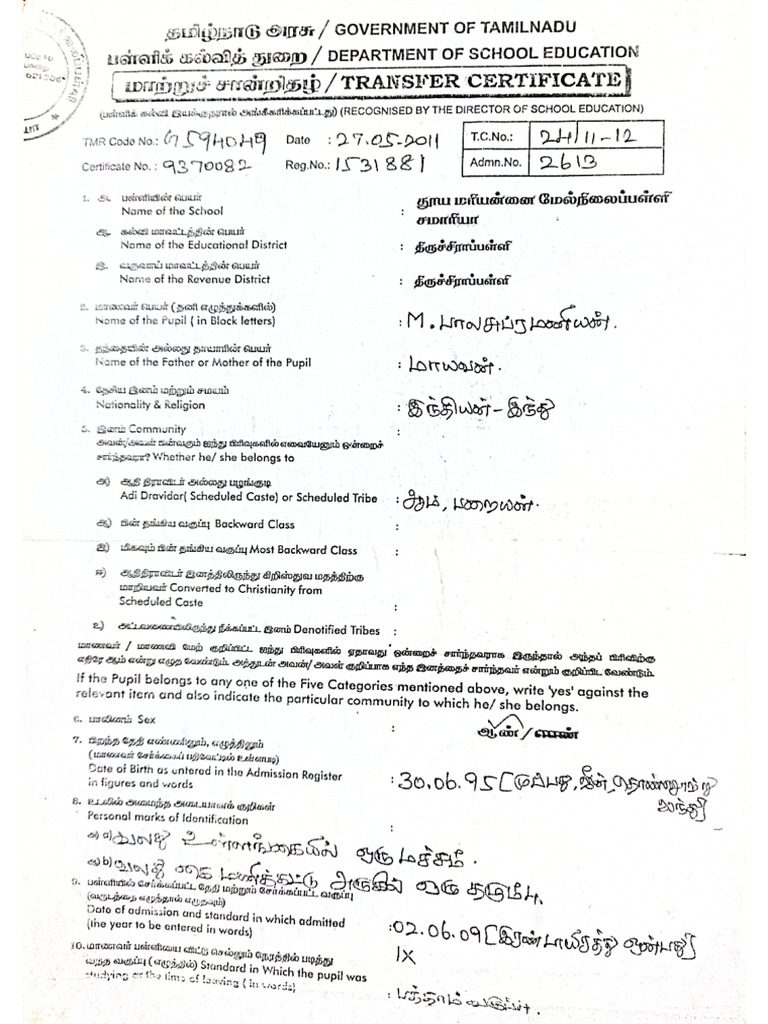 தமிழ்நாடு அரசு / GOVERNMENT OF TAMILNADU
பள்ளிக் கல்வித் துறை / DEPARTMENT OF SCHOOL EDUCATION
மாற்றுச் சான்றிதழ் / TRANSFER CERTIFICATE
(பள்ளிக் கல்வி இயக்குநரால் அங்கீகரிக்கப்பட்டது) (RECOGNISED BY THE DIRECTOR OF SCHOOL EDUCATION)
TMR Code No.: G594049 Date : 27.05-2011 T.C.No.: 24/11-12
Certificate No. : 9370082 Reg.No.: 1531881 Admn.No. 2613
1. அ. பள்ளியின் பெயர் : தூய மரியன்னை மேல்நிலைப்பள்ளி
Name of the School சமாரியா
ஆ. கல்வி மாவட்டத்தின் பெயர்
Name of the Educational District : திருச்சிராப்பள்ளி
இ. வருவாய் மாவட்டத்தின் பெயர்
Name of the Revenue District : திருச்சிராப்பள்ளி
2. மாணவர் பெயர் (தனி எழுத்துக்களில்)
Name of the Pupil ( in Block letters) : M. பாலசுப்ரமணியன்.
3. தந்தையின் அல்லது தாயாரின் பெயர்
Name of the Father or Mother of the Pupil : மாயவன்.
4. தேசிய இனம் மற்றும் சமயம்
Nationality & Religion : இந்தியன் - இந்து
5. இனம் Community :
அவன்/அவள் பின்வரும் ஐந்து பிரிவுகளில் எவையேனும் ஒன்றைச்
சார்ந்தவரா? Whether he/ she belongs to
அ) ஆதி திராவிடர் அல்லது பழங்குடி
Adi Dravidar( Scheduled Caste) or Scheduled Tribe : ஆம், பறையன்.
ஆ) பின் தங்கிய வகுப்பு Backward Class :
இ) மிகவும் பின் தங்கிய வகுப்பு Most Backward Class :
ஈ) ஆதிதிராவிடர் இனத்திலிருந்து கிறிஸ்துவ மதத்திற்கு
மாறியவர் Converted to Christianity from
Scheduled Caste :
உ) அட்டவணையிலிருந்து நீக்கப்பட்ட இனம் Denotified Tribes :
மாணவர் / மாணவி மேற் குறிப்பிட்ட ஐந்து பிரிவுகளில் ஏதாவது ஒன்றைச் சார்ந்தவராக இருந்தால் அந்தப் பிரிவிற்கு
எதிரே ஆம் என்று எழுத வேண்டும். அத்துடன் அவன்/ அவள் குறிப்பாக எந்த இனத்தைச் சார்ந்தவர் என்றும் குறிப்பிட வேண்டும்.
If the Pupil belongs to any one of the Five Categories mentioned above, write 'yes' against the
relevant item and also indicate the particular community to which he/ she belongs.
6. பாலினம் Sex : ஆண்/பெண்
7. பிறந்த தேதி எண்ணிலும், எழுத்திலும்
(மாணவர் சேர்க்கைப் பதிவேட்டில் உள்ளபடி)
Date of Birth as entered in the Admission Register : 30.06.95 [முப்பது, ஜூன், தொண்ணூற்று
in figures and words ஐந்து]
8. உடலில் அமைந்த அடையாளக் குறிகள்
Personal marks of Identification :
அ) a) வலது உள்ளங்கையில் ஒரு மச்சம்.
ஆ) b) வலது கை மணிக்கட்டு அருகில் ஒரு தழும்பு.
9. பள்ளியில் சேர்க்கப்பட்ட தேதி மற்றும் சேர்க்கப்பட்ட வகுப்பு
(வருடத்தை எழுத்தால் எழுதவும்)
Date of admission and standard in which admitted : 02.06.09 [இரண்டாயிரத்து ஒன்பது]
(the year to be entered in words) IX
10. மாணவர் பள்ளியை விட்டு செல்லும் நேரத்தில் படித்து
வந்த வகுப்பு ( எழுத்தில்) Standard in Which the pupil was
studying at the time of leaving ( in words) : பத்தாம் வகுப்பு.